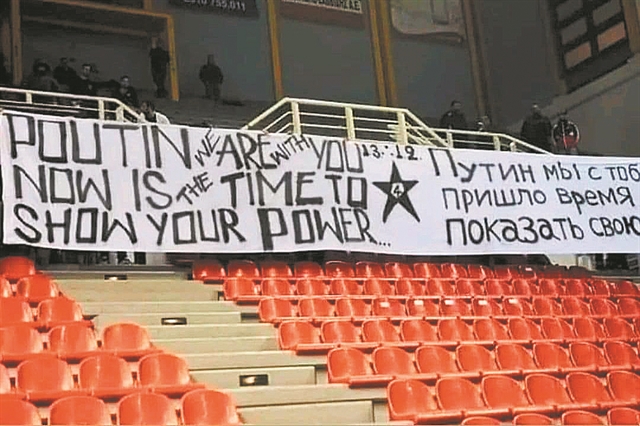 POUTIN WE ARE WITH YOU
NOW IS THE TIME TO
SHOW YOUR POWER...
13 12
4
Путин мы с тоб
пришло время
показать свою
755.011